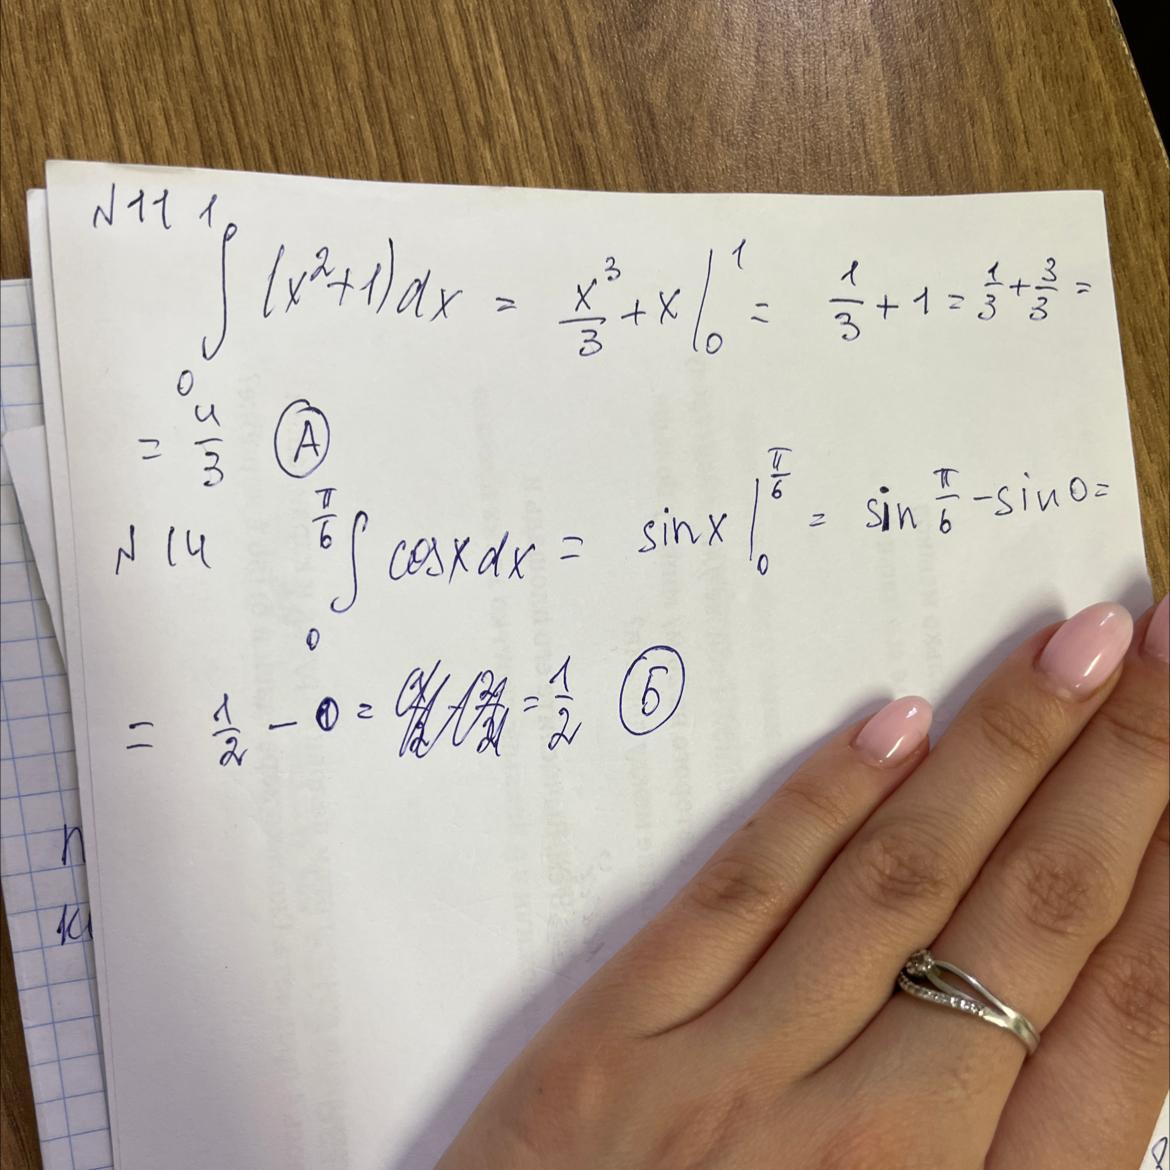 N11 ∫₀¹ (x²+1)dx = x³/3 + x |₀¹ = 1/3 + 1 = 1/3 + 3/3 =
= 4/3 (A)
N14 ∫₀^(π/6) cosxdx = sinx |₀^(π/6) = sin π/6 - sin0 =
= 1/2 - 0 = = 1/2 (Б)